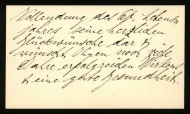 Vollendung des 65. Lebens-
jahres seine herzlichen
Glückwünsche dar &
wünscht Ihnen noch viele
Jahre erfolgreichen Wirkens
& eine gute Gesundheit.